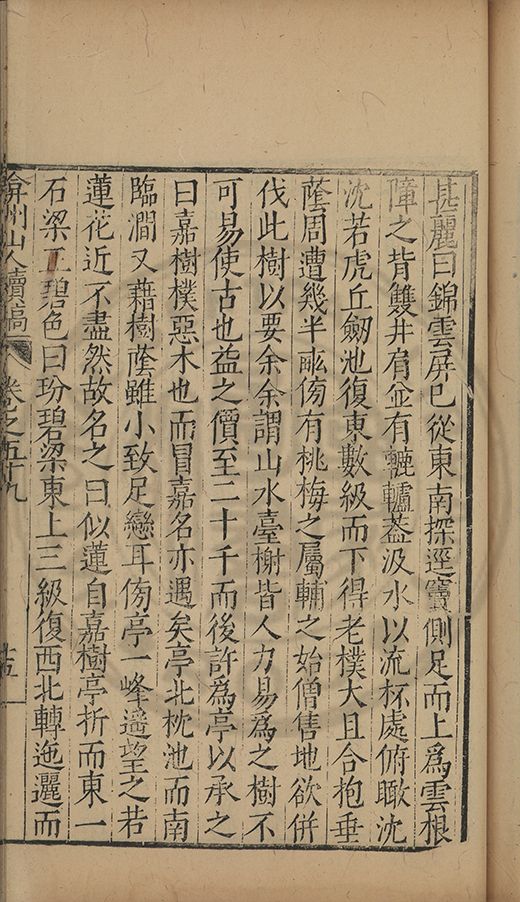 甚麗曰錦雲屏巳從東南探逕竇側足而上爲雲根
障之背雙井肩並有轆轤葢汲水以流杯處俯瞰沈
沈若虎丘劒池復東數級而下得老樸大且合抱垂
蔭周遭幾半畞傍有桃梅之屬輔之始僧售地欲併
伐此樹以要余余謂山水臺榭皆人力易爲之樹不
可易使古也益之價至二十千而後許爲亭以承之
曰嘉樹樸惡木也而冒嘉名亦遇矣亭北枕池而南
臨澗又藉樹蔭雖小致足戀耳傍亭一峰遥望之若
蓮花近不盡然故名之曰似蓮自嘉樹亭折而東一
石梁正碧色曰玢碧梁東上三級復西北轉迤邐而
弇州山人續稿 卷之五十九 十五